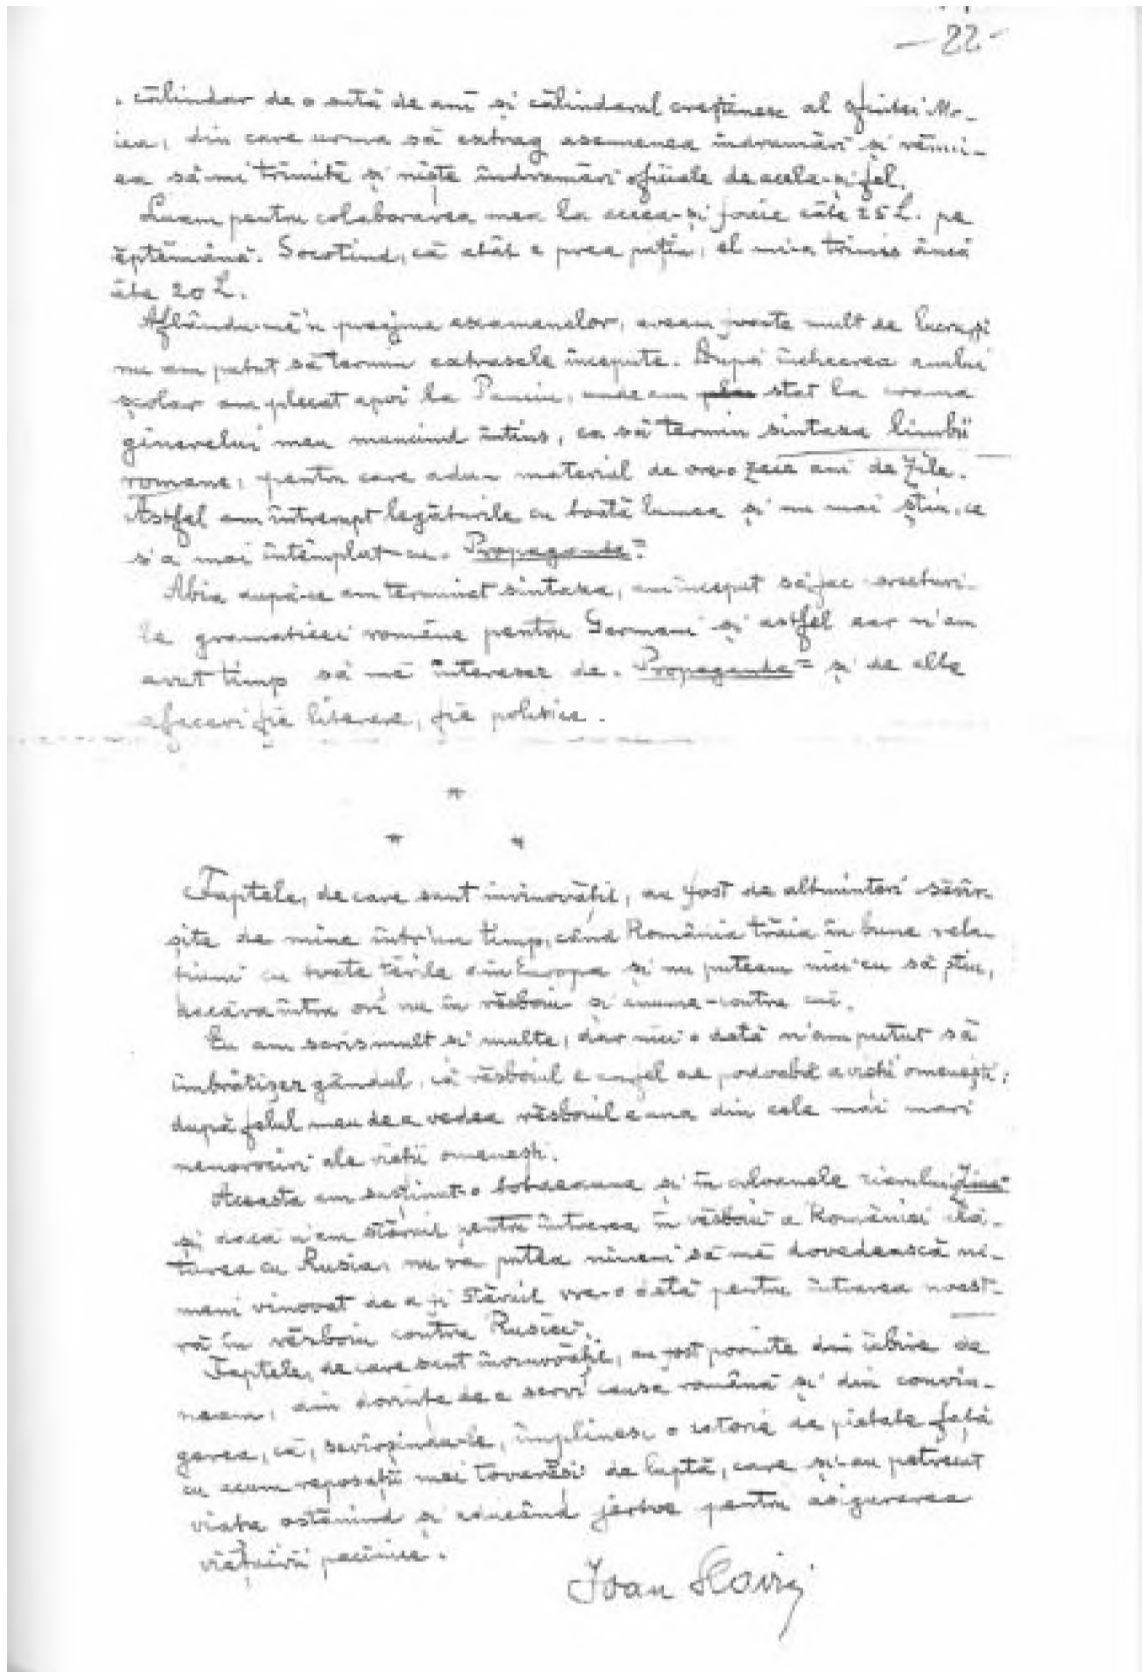 — 22 —
călindar de o sută de ani și călindarul creștinesc al sfintei Mo-
, din care urma să extrag asemenea îndrumări și rămâi-
ea să-mi trimită și niște îndrumări oficiale de acela-și fel.
Luam pentru colaborarea mea la aceea-și foaie câte 25 L. pe
ěptěmână. Socotind, că atât e prea puțin, el mi-a trimis âncă
âte 20 L.
Aflându-mě'n preajma examenelor, aveam foarte mult de lucru, și
nu am putut să termin extrasele începute. După încheerea anului
școlar am plecat apoi la Panciu, unde am stat la crama
ginerelui meu muncind întins, ca să termin sintaxa limbii
romane, pentru care adun material de vre-o zece ani de zile.
Astfel am întrerupt legăturile cu toată lumea și nu mai știu, ce
s'a mai întêmplat cu „Propaganda"
Abia după-ce am terminat sintaxa, am început să fac
le gramaticei române pentru Germani și astfel ear n'am
avut timp să mě interesez de „Propaganda" și de alte
afaceri fie literare, fie politice.
*
* *
Faptele, de care sunt învinovățit, au fost de altminteri sěvîr-
șite de mine într'un timp, când România trăia în bune rela-
țiuni cu toate țările din Europa și nu puteam nici eu să știu,
dacă va întra ori nu în rěsboiu și anume-contra cui.
Eu am scris mult și multe, dar nici o dată n'am putut să
îmbrățișez gândul, că rěsboiul e un fel de podoabă a vieții omenești;
după felul meu de a vedea rěsboiul e una din cele mai mari
nenorociri ale vieții omenești.
Aceasta am susținut-o totdeauna și în coloanele ziarului „Ziua"
și dacă n'am stăruit pentru întrarea în rěsboiu a României ală-
turea cu Rusia, nu va putea nimeni să mě dovedească ni-
meni vinovat de a fi stăruit vre-o dată pentru întrarea noast-
ră în rěsboiu contra Rusiei.
Faptele, de care sunt învinovățit, au fost pornite din iubire de
neam, din dorința de a servi causa română și din convin-
gerea, că, sěvîrșindu-le, împlinesc o datorie de pietate față
cu acum reposații mei tovarěși de luptă, care și-au petrecut
viața ostănind și aducând jertve pentru asigurarea
viețuirii pacinice.
Ioan Slavici